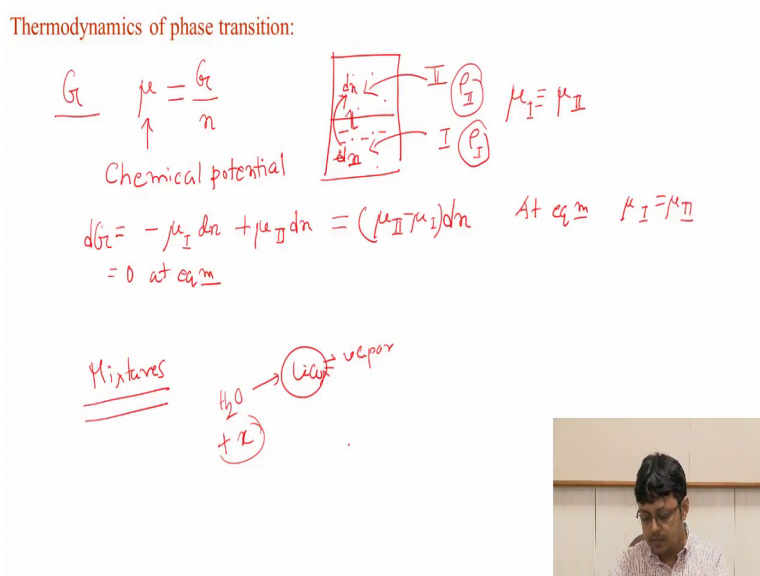 Thermodynamics of phase transition:
G μ = G/n
Chemical potential
dn II P_II
dn I P_I
μ_I = μ_II
dG = - μ_I dn + μ_II dn = (μ_II - μ_I) dn At eqm μ_I = μ_II
= 0 at eqm
Mixtures
H2O → vapor
+ x